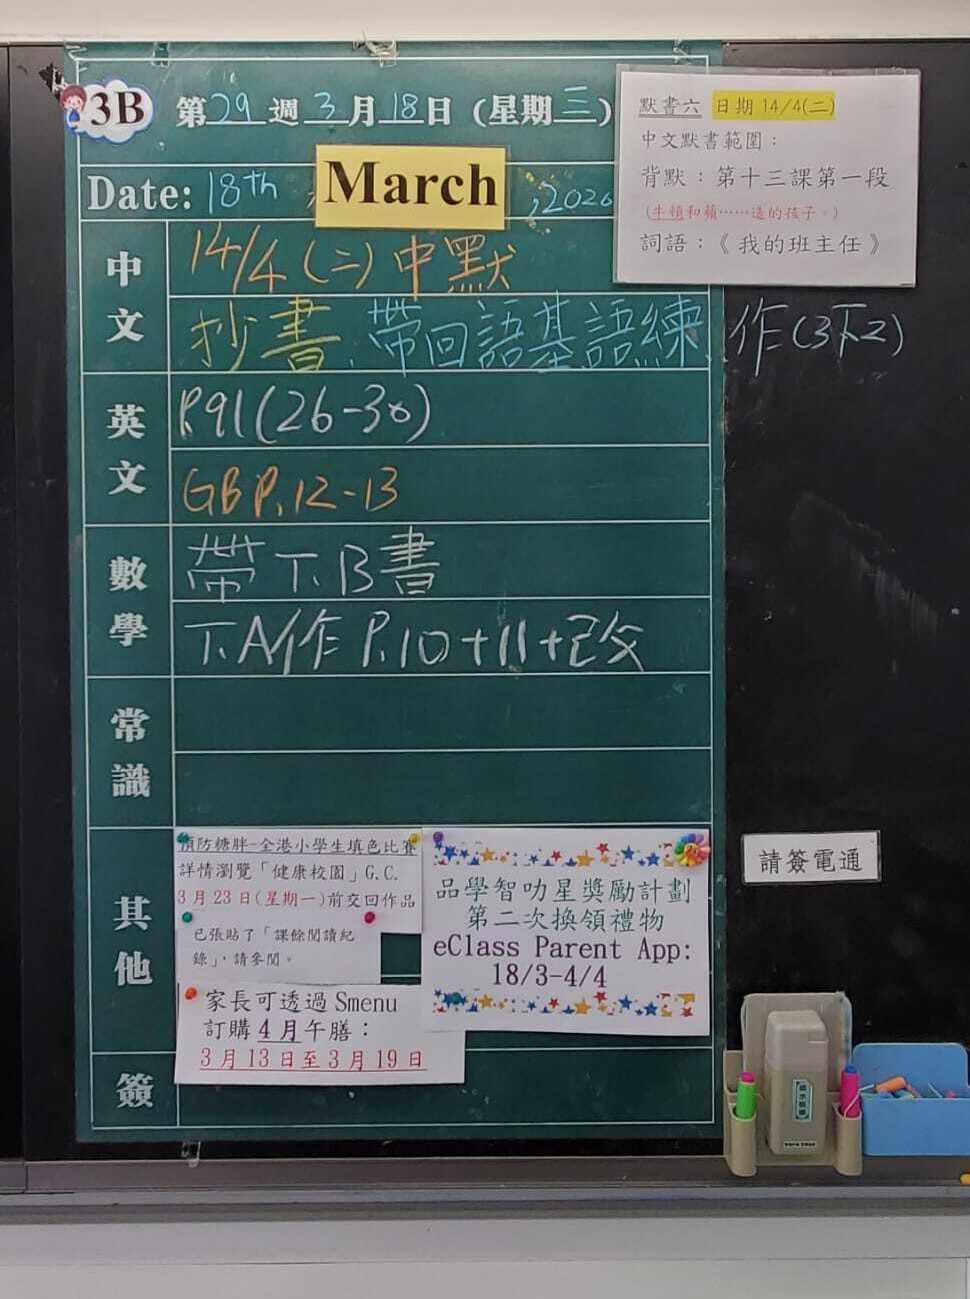 3B 第29週3月18日(星期三)
Date: 18th March ,2026
默書六 日期14/4(二)
中文默書範圍：
背默：第十三課第一段
(牛頓和蘋……造的孩子。)
詞語：《我的班主任》
中文
14/4(二)中默
抄書、帶回語基語練、作(3下2)
英文
P.91(26-30)
GB P.12-13
數學
帶下B書
下A作P.10+11+改
常識
其他
預防糖胖-全港小學生填色比賽
詳情瀏覽「健康校園」G.C.
3月23日(星期一)前交回作品
已張貼了「課餘閱讀紀
錄」，請參閱。
家長可透過Smenu
訂購4月午膳：
3月13日至3月19日
品學智叻星獎勵計劃
第二次換領禮物
eClass Parent App:
18/3-4/4
請簽電通
簽